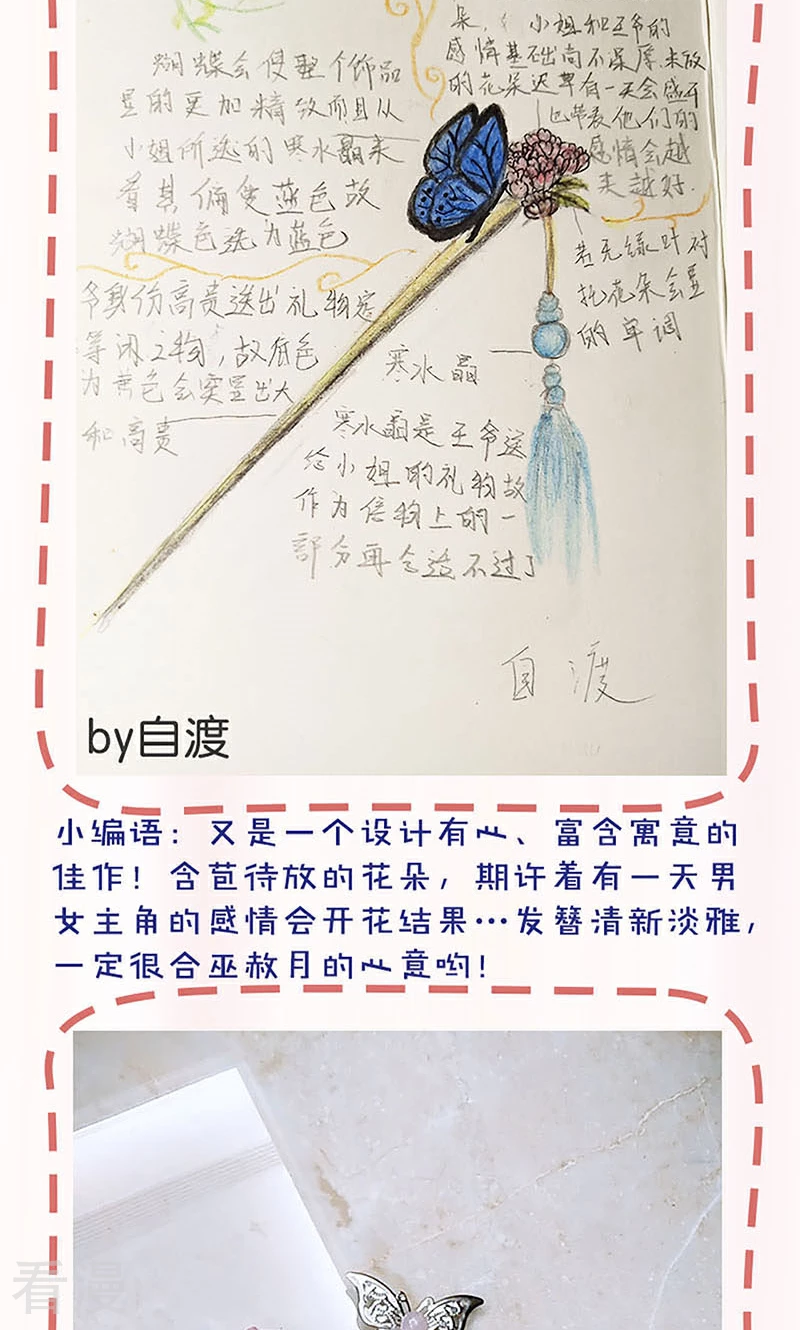 朵,小姐和王爷的
感情基础尚不深厚.未放
的花朵迟早有一天会盛开
也带表他们的
感情会越
来越好.
蝴蝶会使整个饰品
显的更加精致而且从
小姐所送的寒水晶来
看其偏复蓝色故
蝴蝶色选为蓝色
若无绿叶衬
托花朵会显
的单调
爷身份高贵送出礼物定
等闲之物,故底色
为黄色会突显出大
和高贵
寒水晶
寒水晶是王爷送
给小姐的礼物故
作为信物上的一
部分再合适不过了
自渡
by自渡
小编语：又是一个设计有心、富含寓意的
佳作！含苞待放的花朵，期许着有一天男
女主角的感情会开花结果…发簪清新淡雅，
一定很合巫赦月的心意哟！
看漫